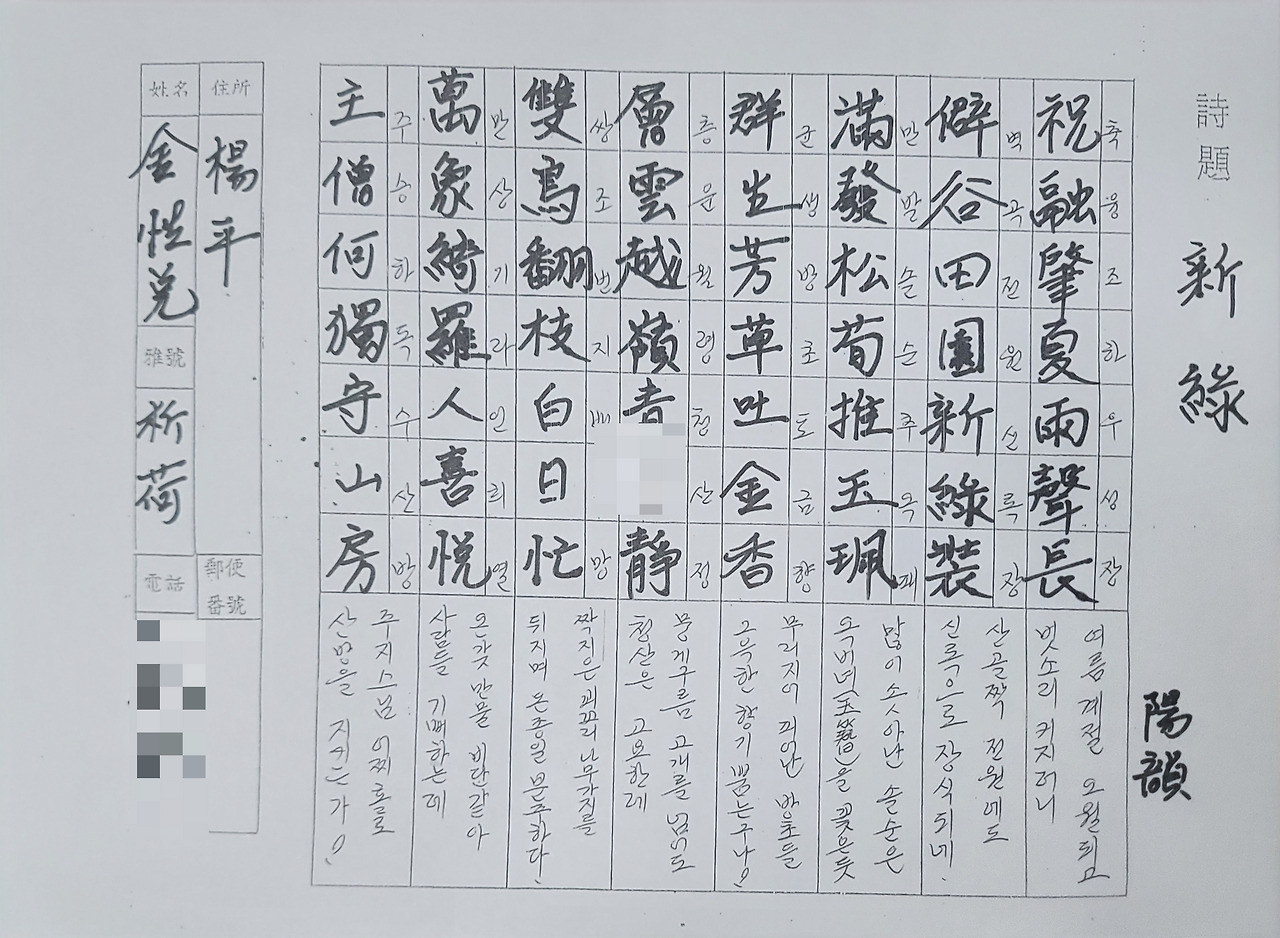 詩題 新綠
陽韻
祝融肇夏雨聲長
축융조하우성장
여름 계절 오월되고
빗소리 커지더니
僻谷田園新綠裝
벽곡전원신록장
산골짝 전원에도
신록으로 장식되네
滿發松荀推玉珮
만발송순추옥패
많이 솟아난 솔순은
옥비녀(玉簪)을 꽂은듯
群生芳草吐金香
군생방초토금향
무리지어 피어난 방초들
그윽한 향기 뿜는구나!
層雲越嶺青 靜
층운월령청산정
뭉게구름 고개를 넘어도
청산은 고요한데
雙鳥翻枝白日忙
쌍조번지배 망
짝지은 꾀꼬리 나무가지를
뒤지며 온종일 분주하다
萬象綺羅人喜悅
만상기라인희열
온갖 만물 비단같아
사람들 기뻐하는데
主僧何獨守山房
주승하독수산방
주지스님 어찌 홀로
산방을 지키는가!
住所 楊平
郵便番號
姓名 金悅兌
雅號 祈荷
電話